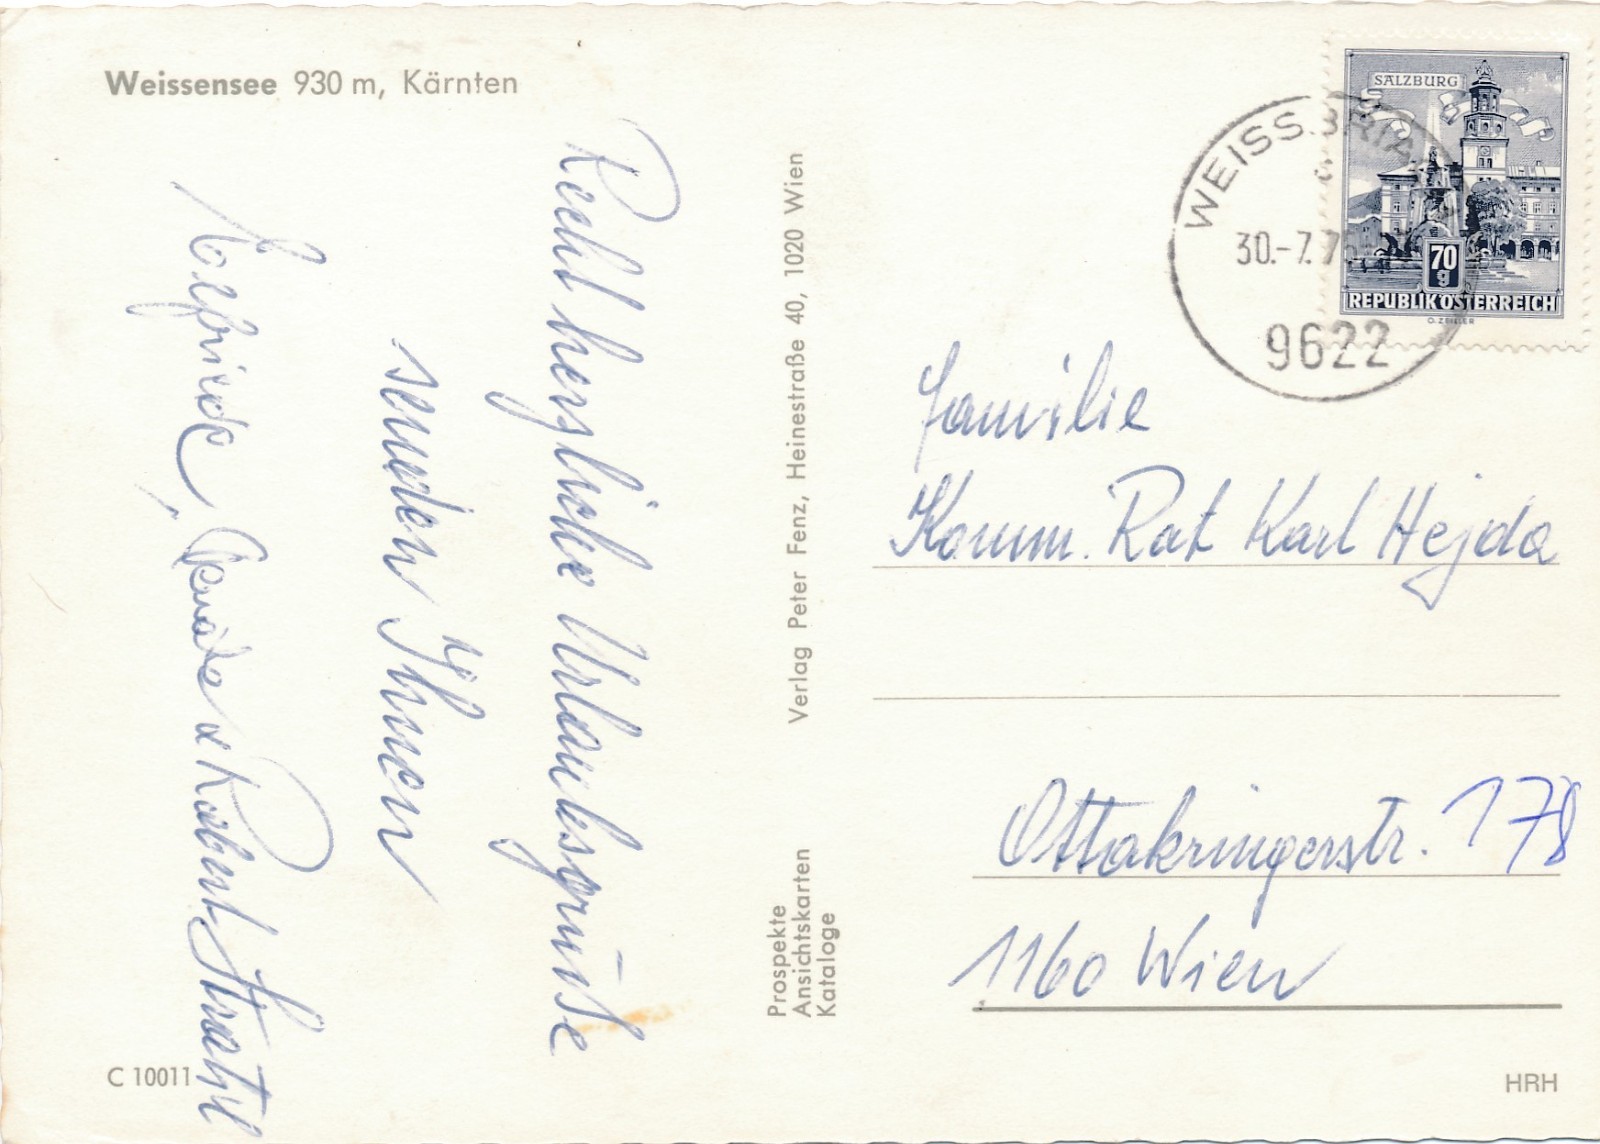 Weissensee 930 m, Kärnten
Recht herzliche Urlaubsgrüße
senden Ihnen
Elfriede, & Robert
Verlag Peter Fenz, Heinestraße 40, 1020 Wien
Prospekte
Ansichtskarten
Kataloge
SALZBURG
70
g
REPUBLIK ÖSTERREICH
O. ZEILLER
WEISSBRIACH
30.-7.7
9622
Familie
Komm. Rat Karl Hejda
Ottakringerstr. 178
1160 Wien
C 10011
HRH